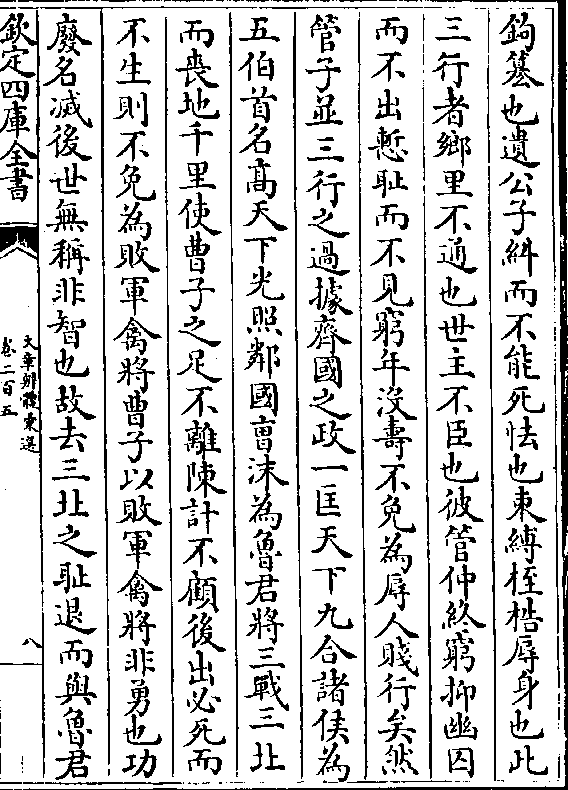 鉤簒也遺公子糾而不能死怯也束縛桎梏辱身也此
三行者鄉里不通也世主不臣也彼管仲終窮抑幽囚
而不出慙耻而不見窮年沒壽不免為辱人賤行矣然
管子並三行之過據齊國之政一匡天下九合諸侯為
五伯首名髙天下光照鄰國曺沫為魯君將三戰三北
而喪地千里使曹子之足不離陳計不顧後出必死而
不生則不免為敗軍禽將曹子以敗軍禽將非勇也功
廢名滅後世無稱非智也故去三北之耻退而與魯君
欽定四庫全書
文章辨體彚選
卷二百五
八